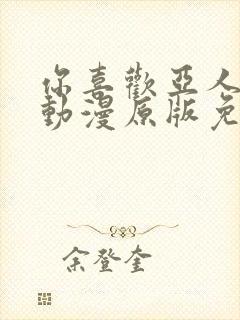 你喜歡亞人
動漫原版免
余登奎